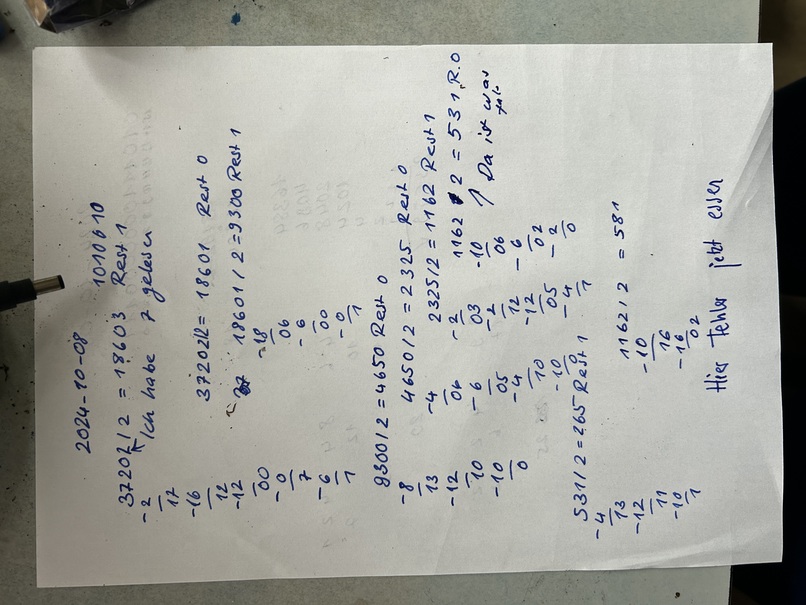 2024-10-08
1010610
37207/2 = 18603 Rest 1
Ich habe 7 gelesen
-2
17
-16
12
-12
00
-0
7
-6
1
37202/2 = 18601 Rest 0
18601/2 = 9300 Rest 1
-18
06
-6
00
-0
1
9300/2 = 4650 Rest 0
-8
13
-12
10
-10
0
4650/2 = 2325 Rest 0
-4
06
-6
05
-4
10
-10
0
2325/2 = 1162 Rest 1
-2
03
-2
12
-12
05
-4
1
1162 2 = 531 R.0
-10
06
-6
02
-2
0
↑ Da ist was
531/2 = 265 Rest 1
-4
13
-12
11
-10
1
1162/2 = 581
-10
16
-16
02
Hier Fehler jetzt essen